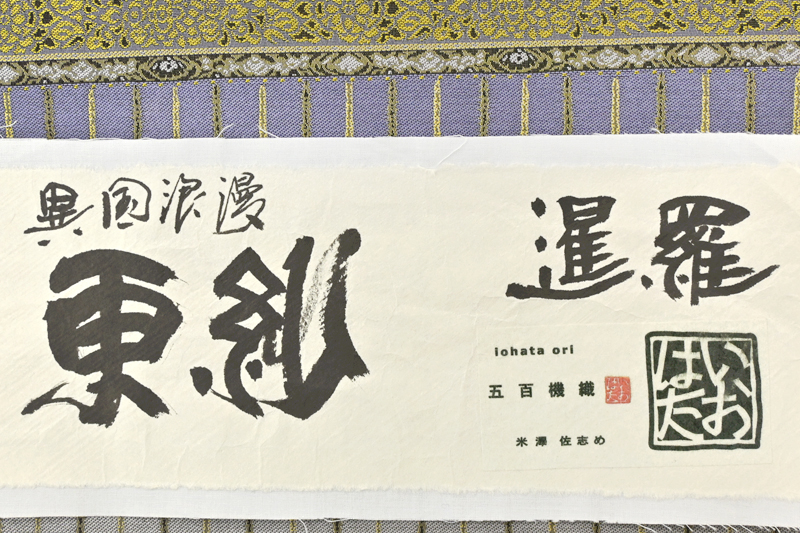 異国浪漫
更紗
暹羅
iohata ori
五百機織
米澤 佐志め
いお
はた